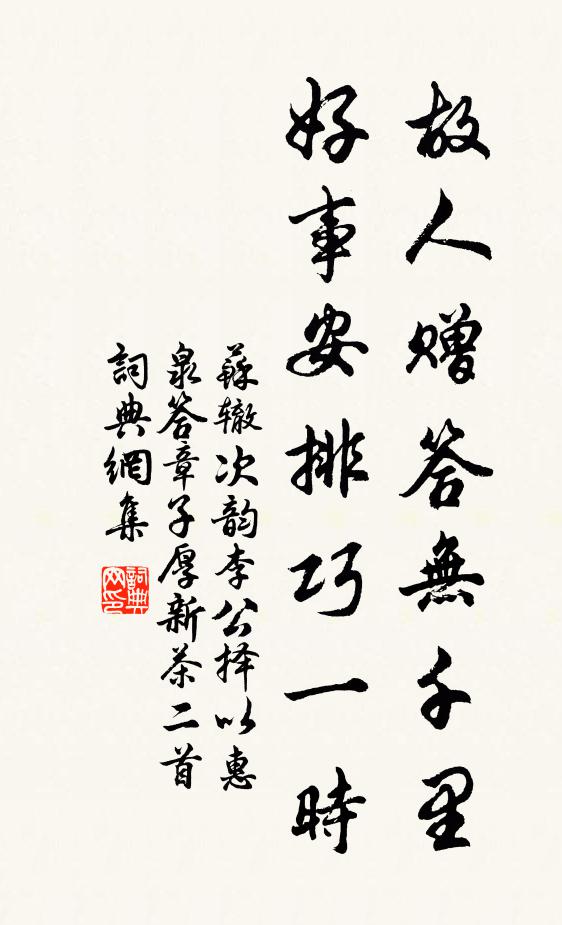 故人赠答無千里
好事安排巧一時
蘇辙次韵李公择以惠
泉答章子厚新茶二首
詞典網集
詞典网印